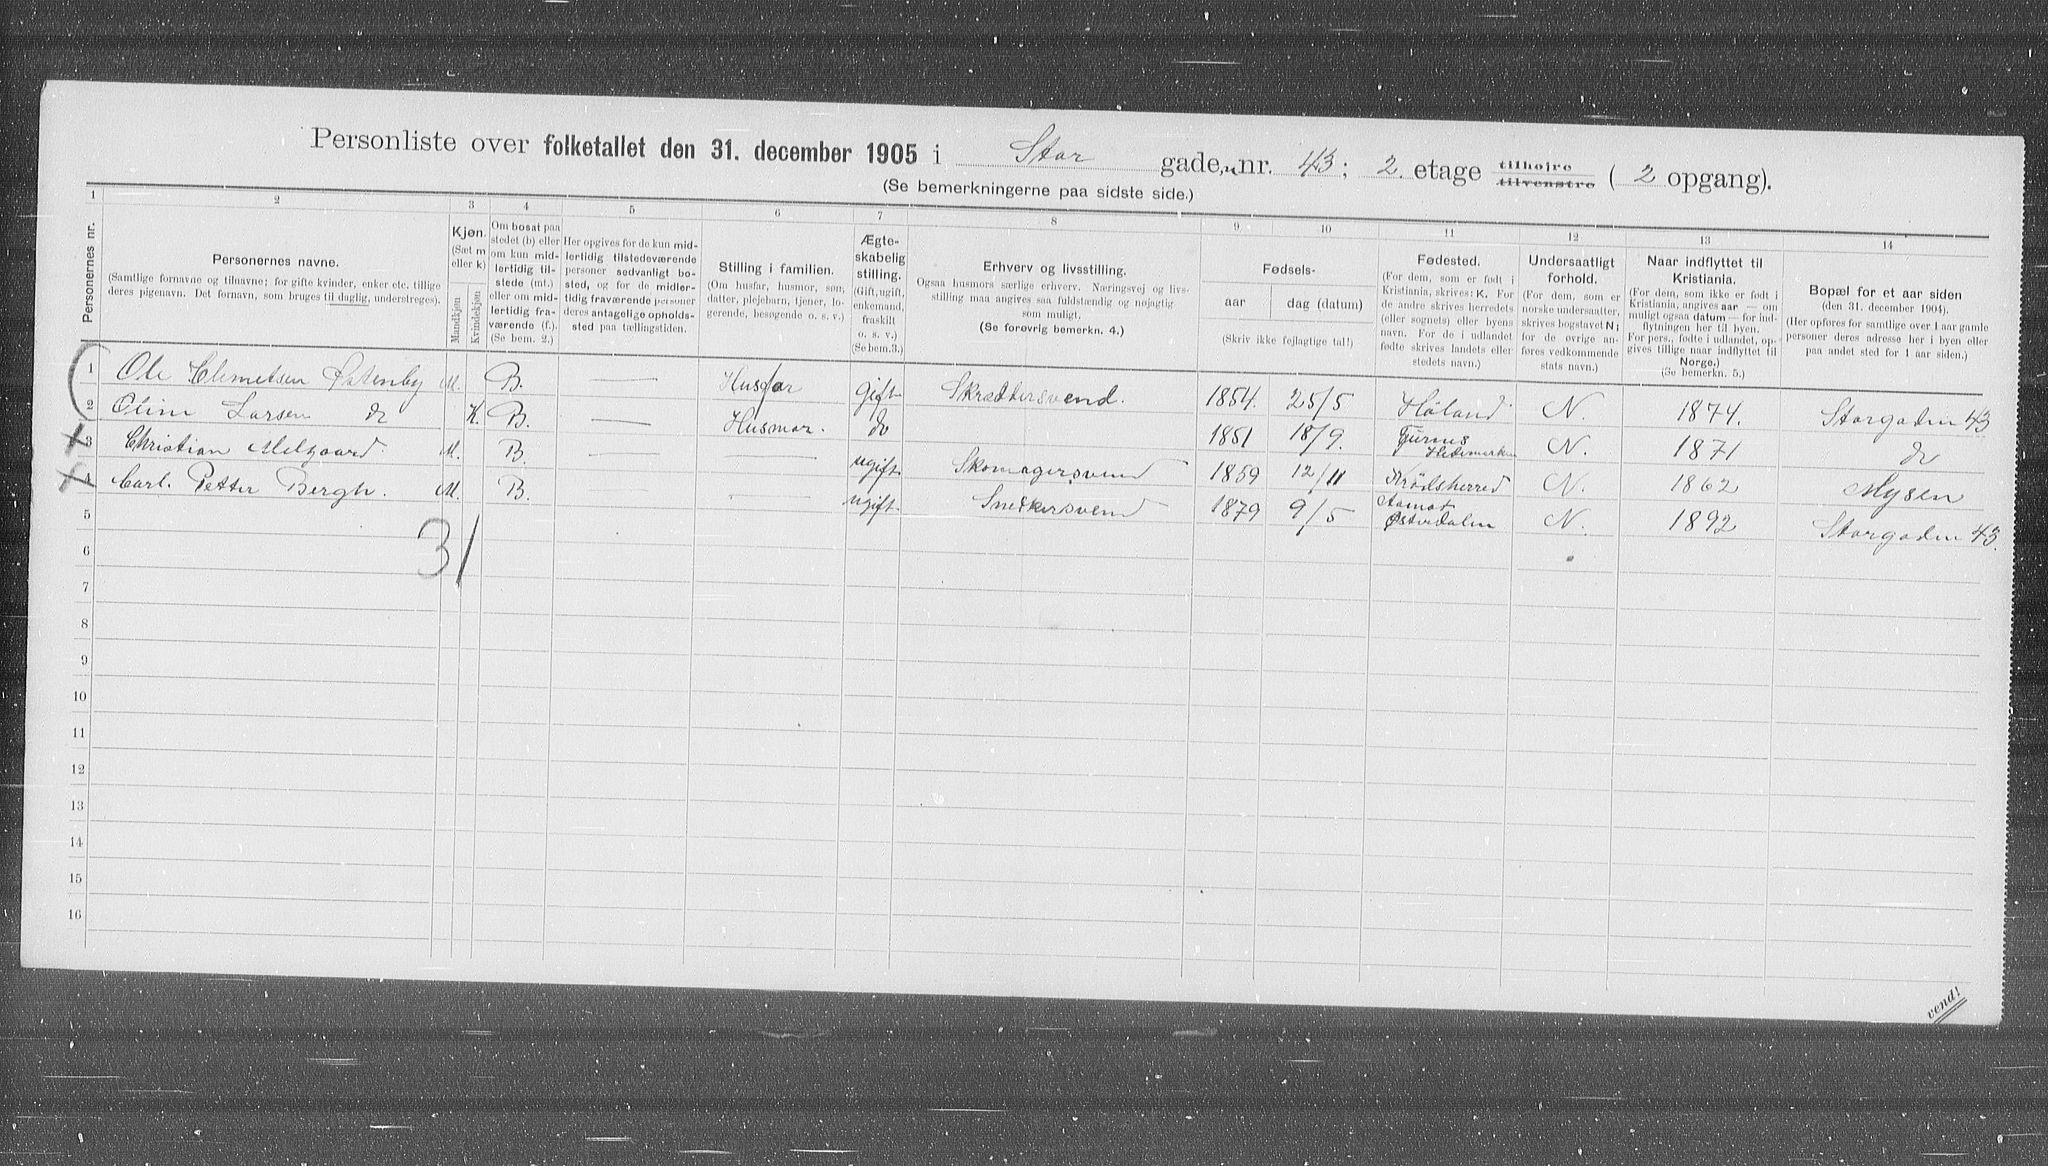 Personliste over folketallet den 31. december 1905 i Stor gade, nr. 43; 2. etage tilhøjre tilvenstre (2 opgang).
(Se bemerkningerne paa sidste side.)
1 2 3 4 5 6 7 8 9 10 11 12 13 14
Personernes nr.
Personernes navne.
(Samtlige fornavne og tilnavne; for gifte kvinder, enker etc. tillige
deres pigenavn. Det fornavn, som bruges til daglig, understreges).
Kjøn.
(Sæt m
eller k)
Mandkjøn
Kvindekjøn
Om bosat paa
stedet (b) eller
om kun mid-
lertidig til-
stede (mt.)
eller om mid-
lertidig fra-
værende (f.).
(Se bem. 2.)
Her opgives for de kun mid-
lertidig tilstedeværende
personer sedvanligt bo-
sted, og for de midler-
tidig fraværende personer
deres antagelige opholds-
sted paa tællingstiden.
Stilling i familien.
(Om husfar, husmor, søn,
datter, plejebarn, tjener, lo-
gerende, besøgende o. s. v.)
Ægte-
skabelig
stilling.
(Gift, ugift,
enkemand,
fraskilt
o. s. v.)
(Se bem. 3.)
Erhverv og livsstilling.
Ogsaa husmors særlige erhverv. Næringsvej og livs-
stilling maa angives saa fuldstændig og nøjagtig
som muligt.
(Se forøvrig bemerkn. 4.)
Fødsels-
aar
dag (datum)
(Skriv ikke fejlagtige tal!)
Fødested.
(For dem, som er født i
Kristiania, skrives: K. For
de andre skrives herredets
(eller sognets) eller byens
navn. For de i udlandet
fødte skrives landets eller
stedets navn.)
Undersaatligt
forhold.
(For dem, som er
norske undersaatter,
skrives bogstavet N;
for de øvrige an-
føres vedkommende
stats navn.)
Naar indflyttet til
Kristiania.
(For dem, som ikke er født i
Kristiania, angives aar — om
muligt ogsaa datum — for ind-
flytningen her til byen.
For pers., fødte i udlandet, op-
gives tillige naar indflyttet til
Norge.)
(Se bemerkn. 5.)
Bopæl for et aar siden
(den 31. december 1904).
(Her opføres for samtlige over 1 aar gamle
personer deres adresse her i byen eller
paa andet sted for 1 aar siden.)
1 Ole Clemetsen Østenby M. B. — Husfar gift Skræddersvend. 1854. 25/5 Höland N. 1874. Storgaden 43
2 Olim Larsen do K. B. — Husmor. do 1851 18/9. Furnes Hedemarken N. 1871 do
3 Christian Melgaard. M. B. — — ugift Skomagersvend 1859 12/11 Krödsherred N. 1862 Mysen
4 Carl. Petter Bergh. M. B. — — ugift Snekkersvend 1879 9/5 Aamot Østerdalen N. 1892 Storgaden 43.
31
5
6
7
8
9
10
11
12
13
14
15
16
vend!